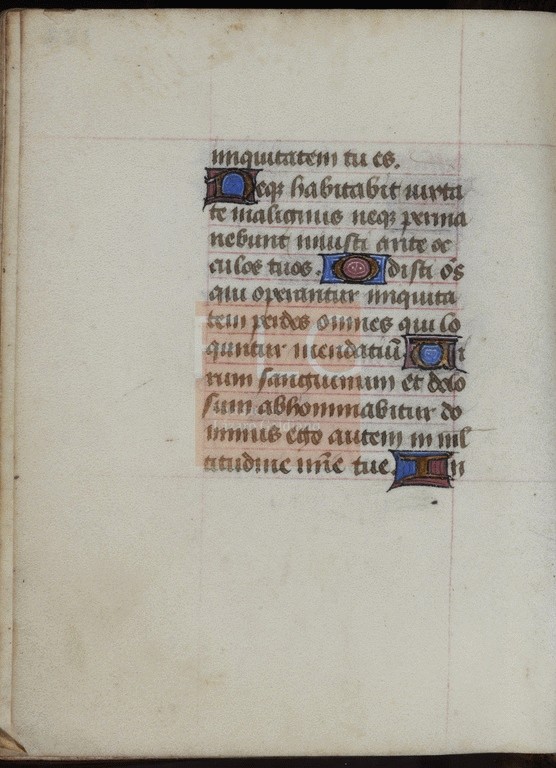 iniquitatem tu es.
Neqz habitabit iuxta
te malignus neqz perma
nebunt iniusti ante oc
culos tuos. Odisti oēs
qui operantur iniquita
tem perdes omnes qui lo
quntur mendatiū. Ui
rum sanguinum et dolo
sum abhominabitur do
minus ego autem in mul
titudine mīe tue. In